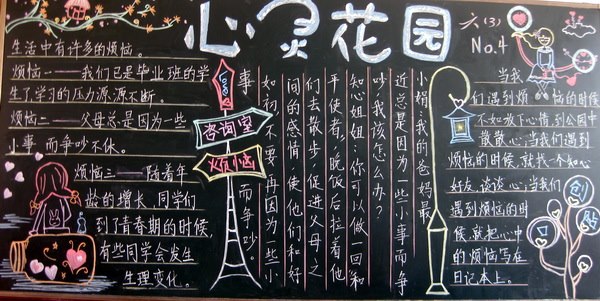 心灵花园
六(3)
No.4
生活中有许多的烦恼。
烦恼一——我们已是毕业班的学
生了学习的压力源源不断。
烦恼二——父母总是因为一些
小事而争吵不休。
烦恼三——随着年
龄的增长,同学们
到了青春期的时候
有些同学会发生
生理变化。
咨询室
烦恼
小娟:我的爸妈最
近总是因为一些小事而争
吵,我该怎么办?
知心姐姐:你可以做一回和
平使者,晚饭后拉着他
们去散步,促进父母之
间的感情,使他们和好
如初,不要再因为一些小
事而争吵。
当我
们遇到烦恼的时候
不如放下心情到公园中
散散心;当我们遇到
烦恼的时候,就找个知心
好友,谈谈心;当我们
遇到烦恼的时
候,就把心中
的烦恼写在
日记本上。
创
贴